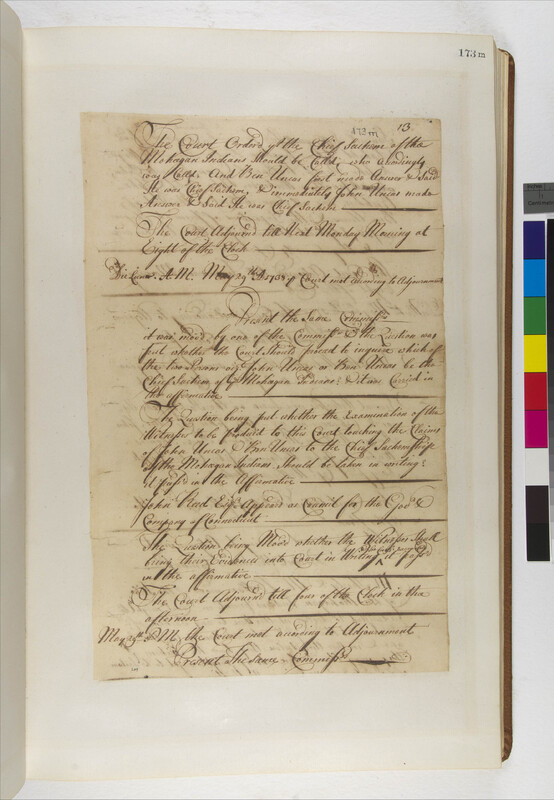 173 m
173 m
13.
The Court Orderd yt the Chief Sachem of the
Mohegan Indians Should be Calld, who accordingly
was Calld, And Ben Uncas first made Answer & Said
He was Chief Sachem, & immediately John Uncas made
Answer & Said He was Chief Sachem
The Court Adjournd till Next Monday Morning at
Eight of the Clock
Die Lunæ A. M. May 29th 1738 ye Court met according to Adjournmt
Present the Same Commissrs
it was movd by one of the Commissrs & the Question was
put whether the Court Should proceed to inquire which of
the two Persons viz John Uncas or Ben Uncas be the
Chief Sachem of ye Mohegan Indians; & it was Carried in
the affirmative
The Question being put whether the Examination of the
Witnesses to be producd to this Court touching the Claims
of John Uncas & Ben Uncas to the Chief Sachemship
of the Mohegan Indians Should be taken in writing;
it pass'd in the Affirmative
John Read Esqr Appeard as Council for the Govr &
Company of Connecticut
The Question being Movd whether the Witnesses Shall
bring their Evidences into Court in Writing it pass'd
in the affirmative
The Court Adjournd till four of the Clock in the
afternoon
May 29th P M, the Court met according to Adjournment
Present the Same Commissrs